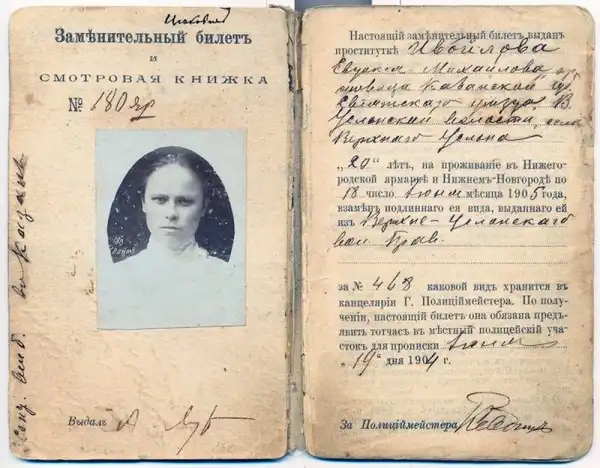 Замѣнительный билетъ
и
СМОТРОВАЯ КНИЖКА
№ 180 яр
Выдалъ
Настоящій замѣнительный билетъ выданъ
проституткѣ
Евдокия Михайлова
Казанской
уѣзда, В.
Услонской волости, села
Верхняго Услона
„20“ лѣтъ, на проживаніе въ Нижего-
родской ярмаркѣ и Нижнемъ-Новгородѣ по
18 число Іюня мѣсяца 1905 года,
взамѣнъ подлиннаго ея вида, выданнаго ей
изъ Верхне-Услонскаго
вол Прав.
за № 468 каковой видъ хранится въ
канцеляріи Г. Полиціймейстера. По полу-
ченіи, настоящій билетъ она обязана предъ-
явить тотчасъ въ мѣстный полицейскій уча-
стокъ для прописки Іюня
„19“ дня 1904 г.
За Полиціймейстера